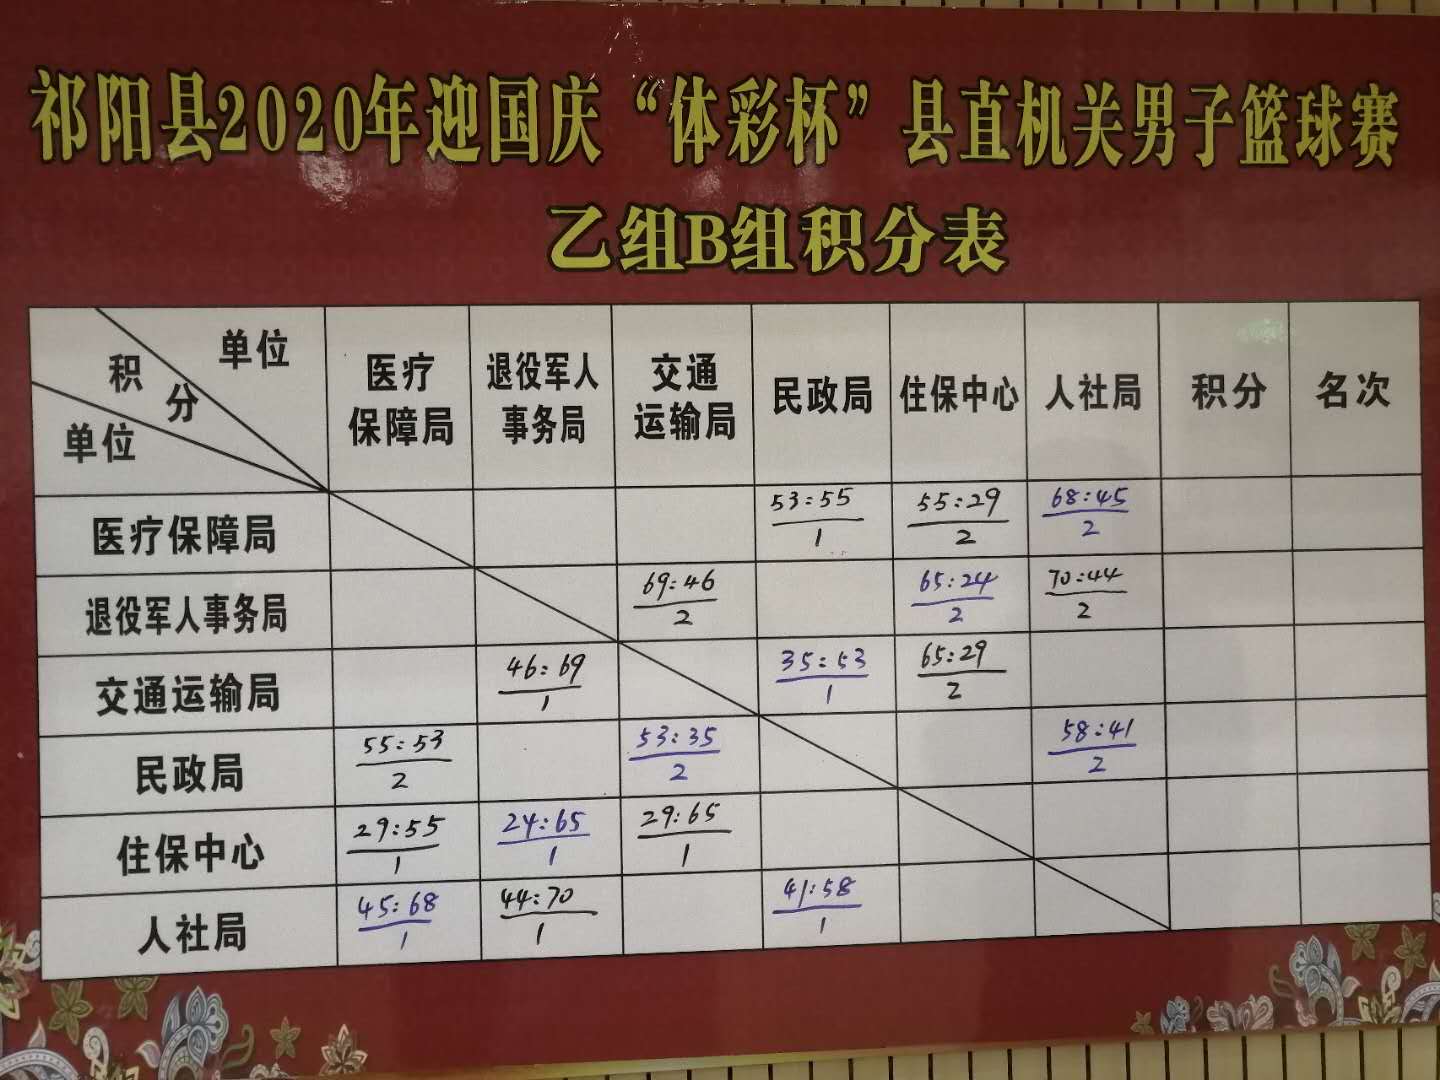 祁阳县2020年迎国庆“体彩杯”县直机关男子篮球赛
乙组B组积分表
单位
积
分
单位
医疗
保障局
退役军人
事务局
交通
运输局
民政局
住保中心
人社局
积分
名次
医疗保障局
53:55
1
55:29
2
68:45
2
退役军人事务局
69:46
2
65:24
2
70:44
2
交通运输局
46:69
1
35:53
1
65:29
2
民政局
55:53
2
53:35
2
58:41
2
住保中心
29:55
1
24:65
1
29:65
1
人社局
45:68
1
44:70
1
41:58
1